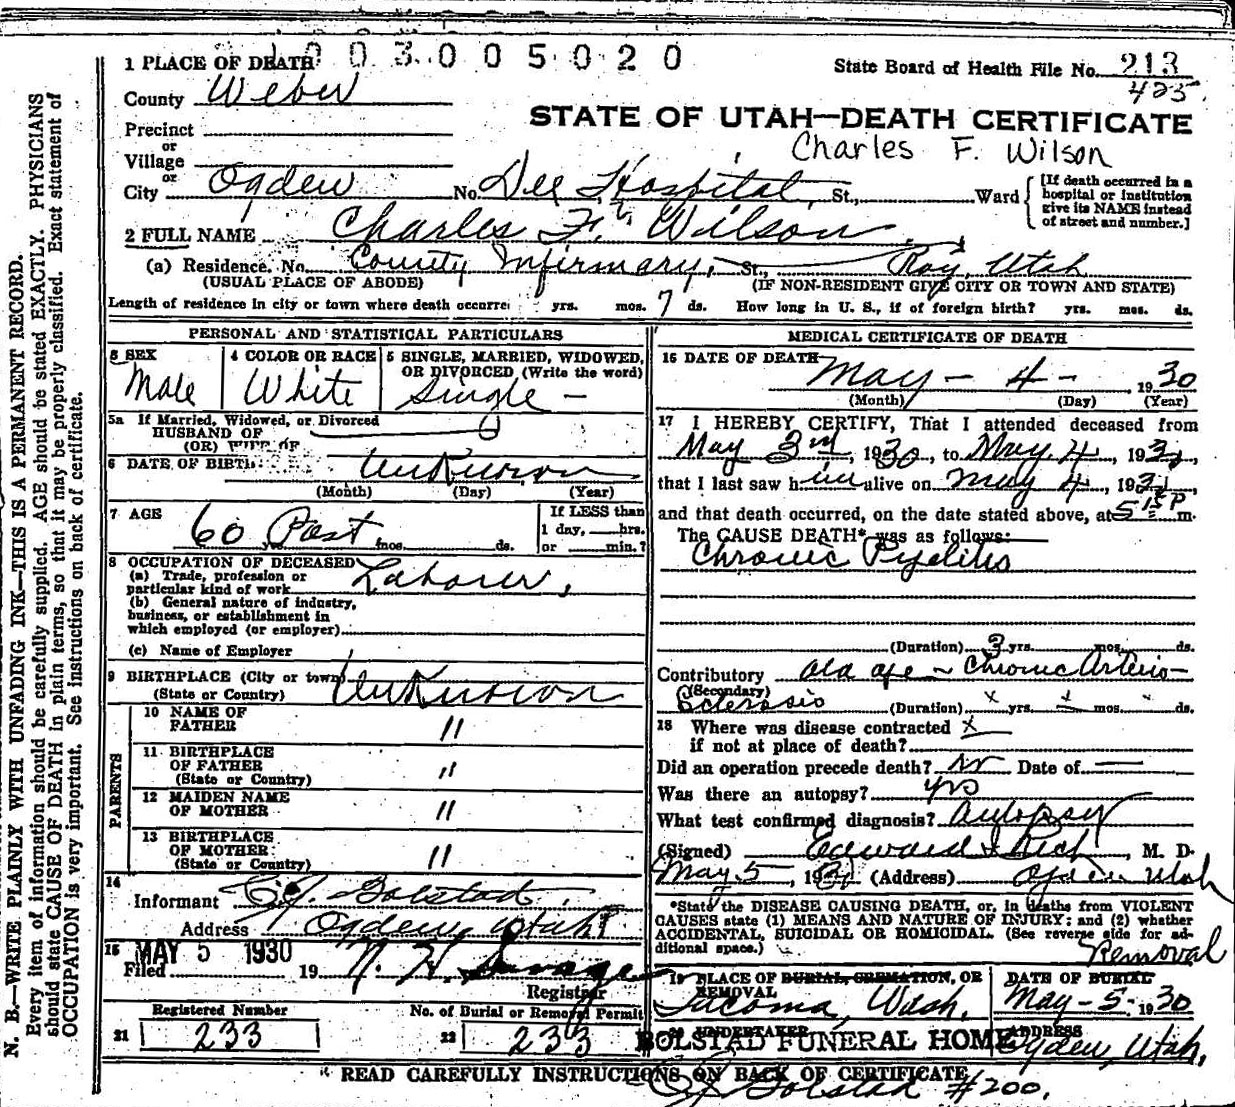 1003005020
1 PLACE OF DEATH
State Board of Health File No. 213
425.
County Weber
STATE OF UTAH—DEATH CERTIFICATE
Precinct
or
Charles F. Wilson
Village
or
City Ogden No. Dee Hospital, St., Ward
[If death occurred in a hospital or institution give its NAME instead of street and number.]
2 FULL NAME Charles F. Wilson
(a) Residence. No. County Infirmary, St., Roy, Utah
(USUAL PLACE OF ABODE) (IF NON-RESIDENT GIVE CITY OR TOWN AND STATE)
Length of residence in city or town where death occurre yrs. mos. 7 ds. How long in U. S., if of foreign birth? yrs. mos. ds.
PERSONAL AND STATISTICAL PARTICULARS
3 SEX
Male
4 COLOR OR RACE
White
5 SINGLE, MARRIED, WIDOWED,
OR DIVORCED (Write the word)
Single -
5a If Married, Widowed, or Divorced
HUSBAND OF
(OR) WIFE OF
6 DATE OF BIRTH: Unknown
(Month) (Day) (Year)
7 AGE
60 Past
yrs. mos. ds.
If LESS than
1 day, hrs.
or min.?
8 OCCUPATION OF DECEASED
(a) Trade, profession or
particular kind of work Laborer,
(b) General nature of industry,
business, or establishment in
which employed (or employer)
(c) Name of Employer
9 BIRTHPLACE (City or town)
(State or Country) Unknown
PARENTS
10 NAME OF
FATHER "
11 BIRTHPLACE
OF FATHER "
(State or Country)
12 MAIDEN NAME
OF MOTHER "
13 BIRTHPLACE
OF MOTHER
(State or Country) "
14
Informant
Address Ogden, Utah
15
MAY 5 1930
Filed 19 N. H. Savage
Registrar
Registered Number
21 233
No. of Burial or Removal Permit
22 233
MEDICAL CERTIFICATE OF DEATH
16 DATE OF DEATH
May - 4 - 1930
(Month) (Day) (Year)
17 I HEREBY CERTIFY, That I attended deceased from
May 3rd, 1930, to May 4, 193
that I last saw him alive on May 4, 193
and that death occurred, on the date stated above, at 5 15 P m.
The CAUSE DEATH* was as follows:
Chronic Pyelitis
(Duration) 3 yrs. mos. ds.
Contributory old age - Chronic Arterio-
(Secondary)
Sclerosis (Duration) x yrs. mos. ds.
18 Where was disease contracted x
if not at place of death?
Did an operation precede death? no Date of
Was there an autopsy? yes
What test confirmed diagnosis? autopsy
(Signed) Edward I Rich, M. D.
May 5, 193 (Address) Ogden Utah
*State the DISEASE CAUSING DEATH, or, in deaths from VIOLENT
CAUSES state (1) MEANS AND NATURE OF INJURY; and (2) whether
ACCIDENTAL, SUICIDAL OR HOMICIDAL. (See reverse side for ad-
ditional space.)
Removal
19 PLACE OF BURIAL, CREMATION, OR
REMOVAL
Tacoma, Wash.
DATE OF BURIAL
May - 5 - 1930
20 UNDERTAKER
BOLSTAD FUNERAL HOME
ADDRESS
Ogden, Utah,
READ CAREFULLY INSTRUCTIONS ON BACK OF CERTIFICATE
#200.
N. B.—WRITE PLAINLY WITH UNFADING INK—THIS IS A PERMANENT RECORD.
Every item of information should be carefully supplied. AGE should be stated EXACTLY. PHYSICIANS
should state CAUSE OF DEATH in plain terms, so that it may be properly classified. Exact statement of
OCCUPATION is very important. See instructions on back of certificate.